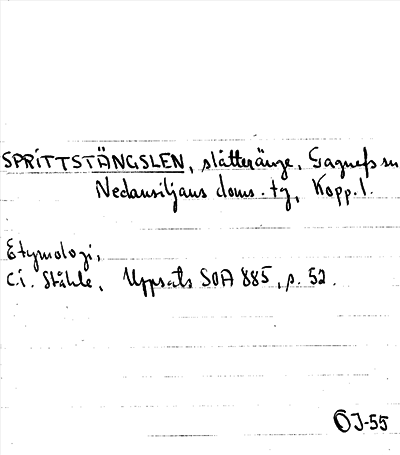 SPRITTSTÄNGSLEN, slåtteränge, Gagnefs sn
Nedansiljans doms.tg, Kopp.l.
Etymologi,
C.I. Ståhle, Uppsats SOA 885, p. 52.
ÖJ-55